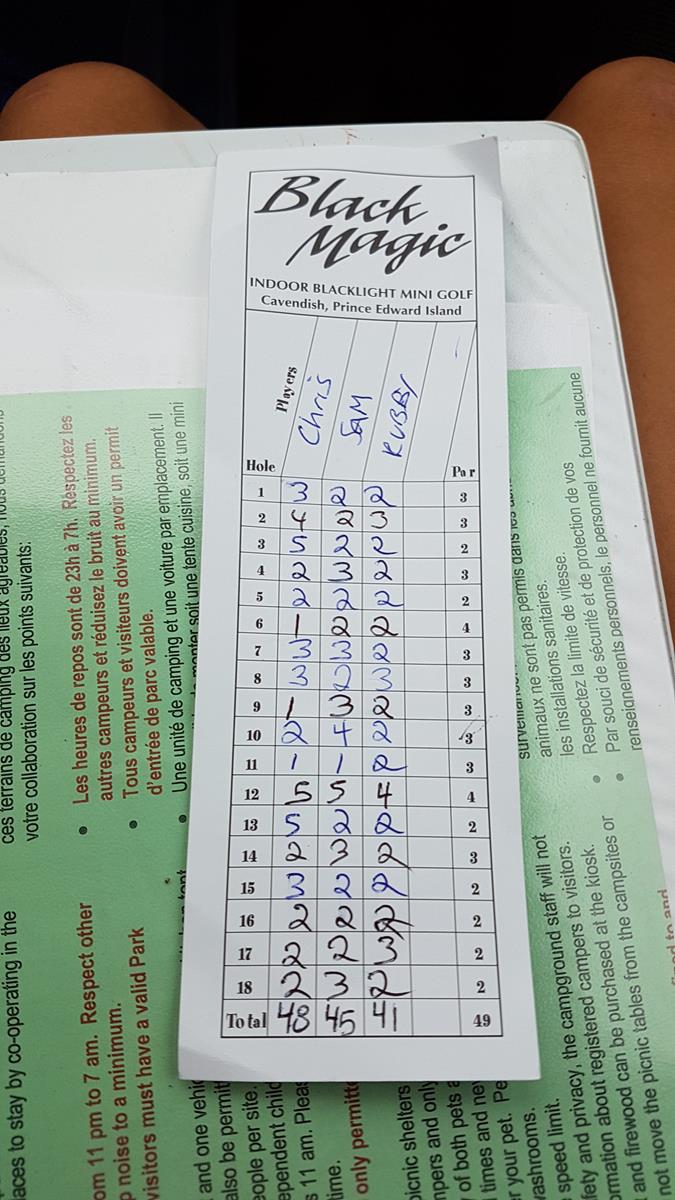 Black
Magic
INDOOR BLACKLIGHT MINI GOLF
Cavendish, Prince Edward Island
Players Chris SAM RUBBY
Hole Par
1 3 2 2 3
2 4 2 3 3
3 5 2 2 2
4 2 3 2 3
5 2 2 2 2
6 1 2 2 4
7 3 3 2 3
8 3 2 3 3
9 1 3 2 3
10 2 4 2 3
11 1 1 2 3
12 5 5 4 4
13 5 2 2 2
14 2 3 2 3
15 3 2 2 2
16 2 2 2 2
17 2 2 3 2
18 2 3 2 2
Total 48 45 41 49
ces terrains de camping des lieux agréables,
votre collaboration sur les points suivants:
• Les heures de repos sont de 23h à 7h. Respectez les
autres campeurs et réduisez le bruit au minimum.
• Tous campeurs et visiteurs doivent avoir un permit
d'entrée de parc valable.
• Une unité de camping et une voiture par emplacement. Il
soit une tente cuisine, soit une mini
laces to stay by co-operating in the
om 11 pm to 7 am. Respect other
p noise to a minimum.
visitors must have a valid Park
and one vehic
also be permitt
eople per site.
ependent child
s 11 am. Pleas
time.
only permitt
picnic shelters
mpers and only
of both pets a
times and ne
your pet. Pe
ashrooms.
speed limit.
fety and privacy, the campground staff will not
rmation about registered campers to visitors.
and firewood can be purchased at the kiosk.
not move the picnic tables from the campsites or
ne sont pas permis dans les
animaux ne sont pas permis dans
les installations sanitaires.
• Respectez la limite de vitesse.
• Par souci de sécurité et de protection de vos
renseignements personnels, le personnel ne fournit aucune